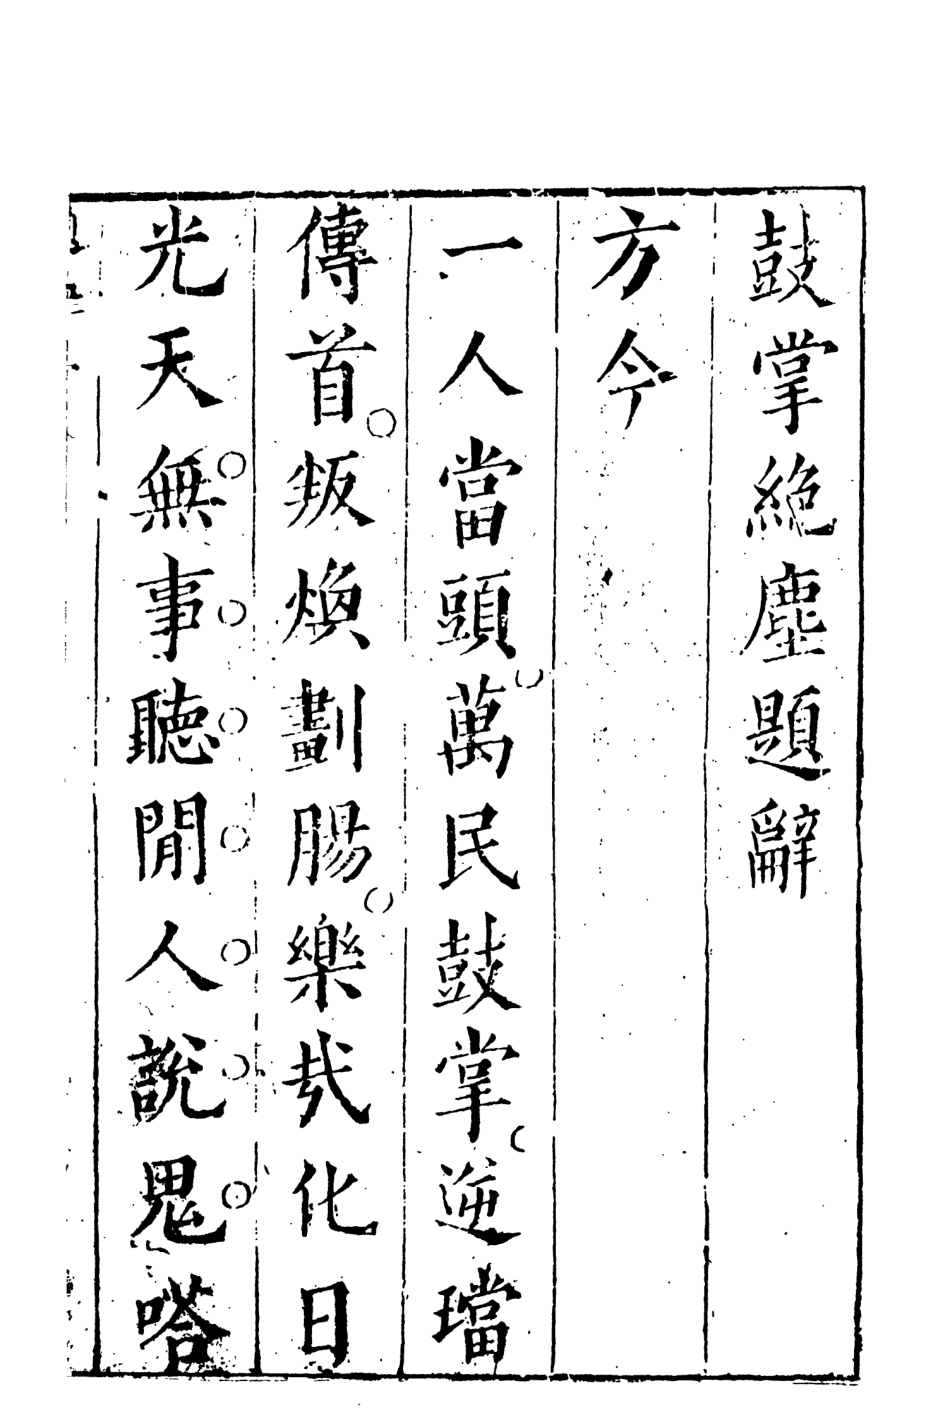 鼓掌絶塵題辭
方今
一人當頭萬民鼓掌逆璫
傳首叛煥劃腸樂哉化日
光天無事聽閒人說鬼嗒